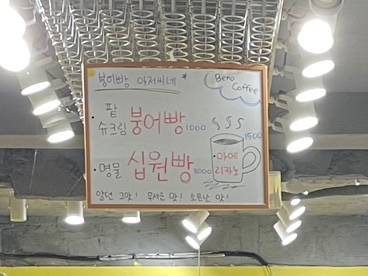 붕어빵 아저씨네
Bono Coffee
팥
슈크림 붕어빵 1000
1500
명물 십원빵 3000
아메
리카노
알던 그맛! 무서운 맛! 소문난 맛!